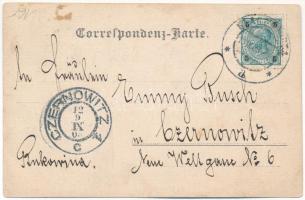 Correspondenz-Karte.
An Fräulein
Emmy Busch
in Czernowitz
Bukowina.
Neue Weltgasse № 6
CZERNOWITZ
12
9
IX
C